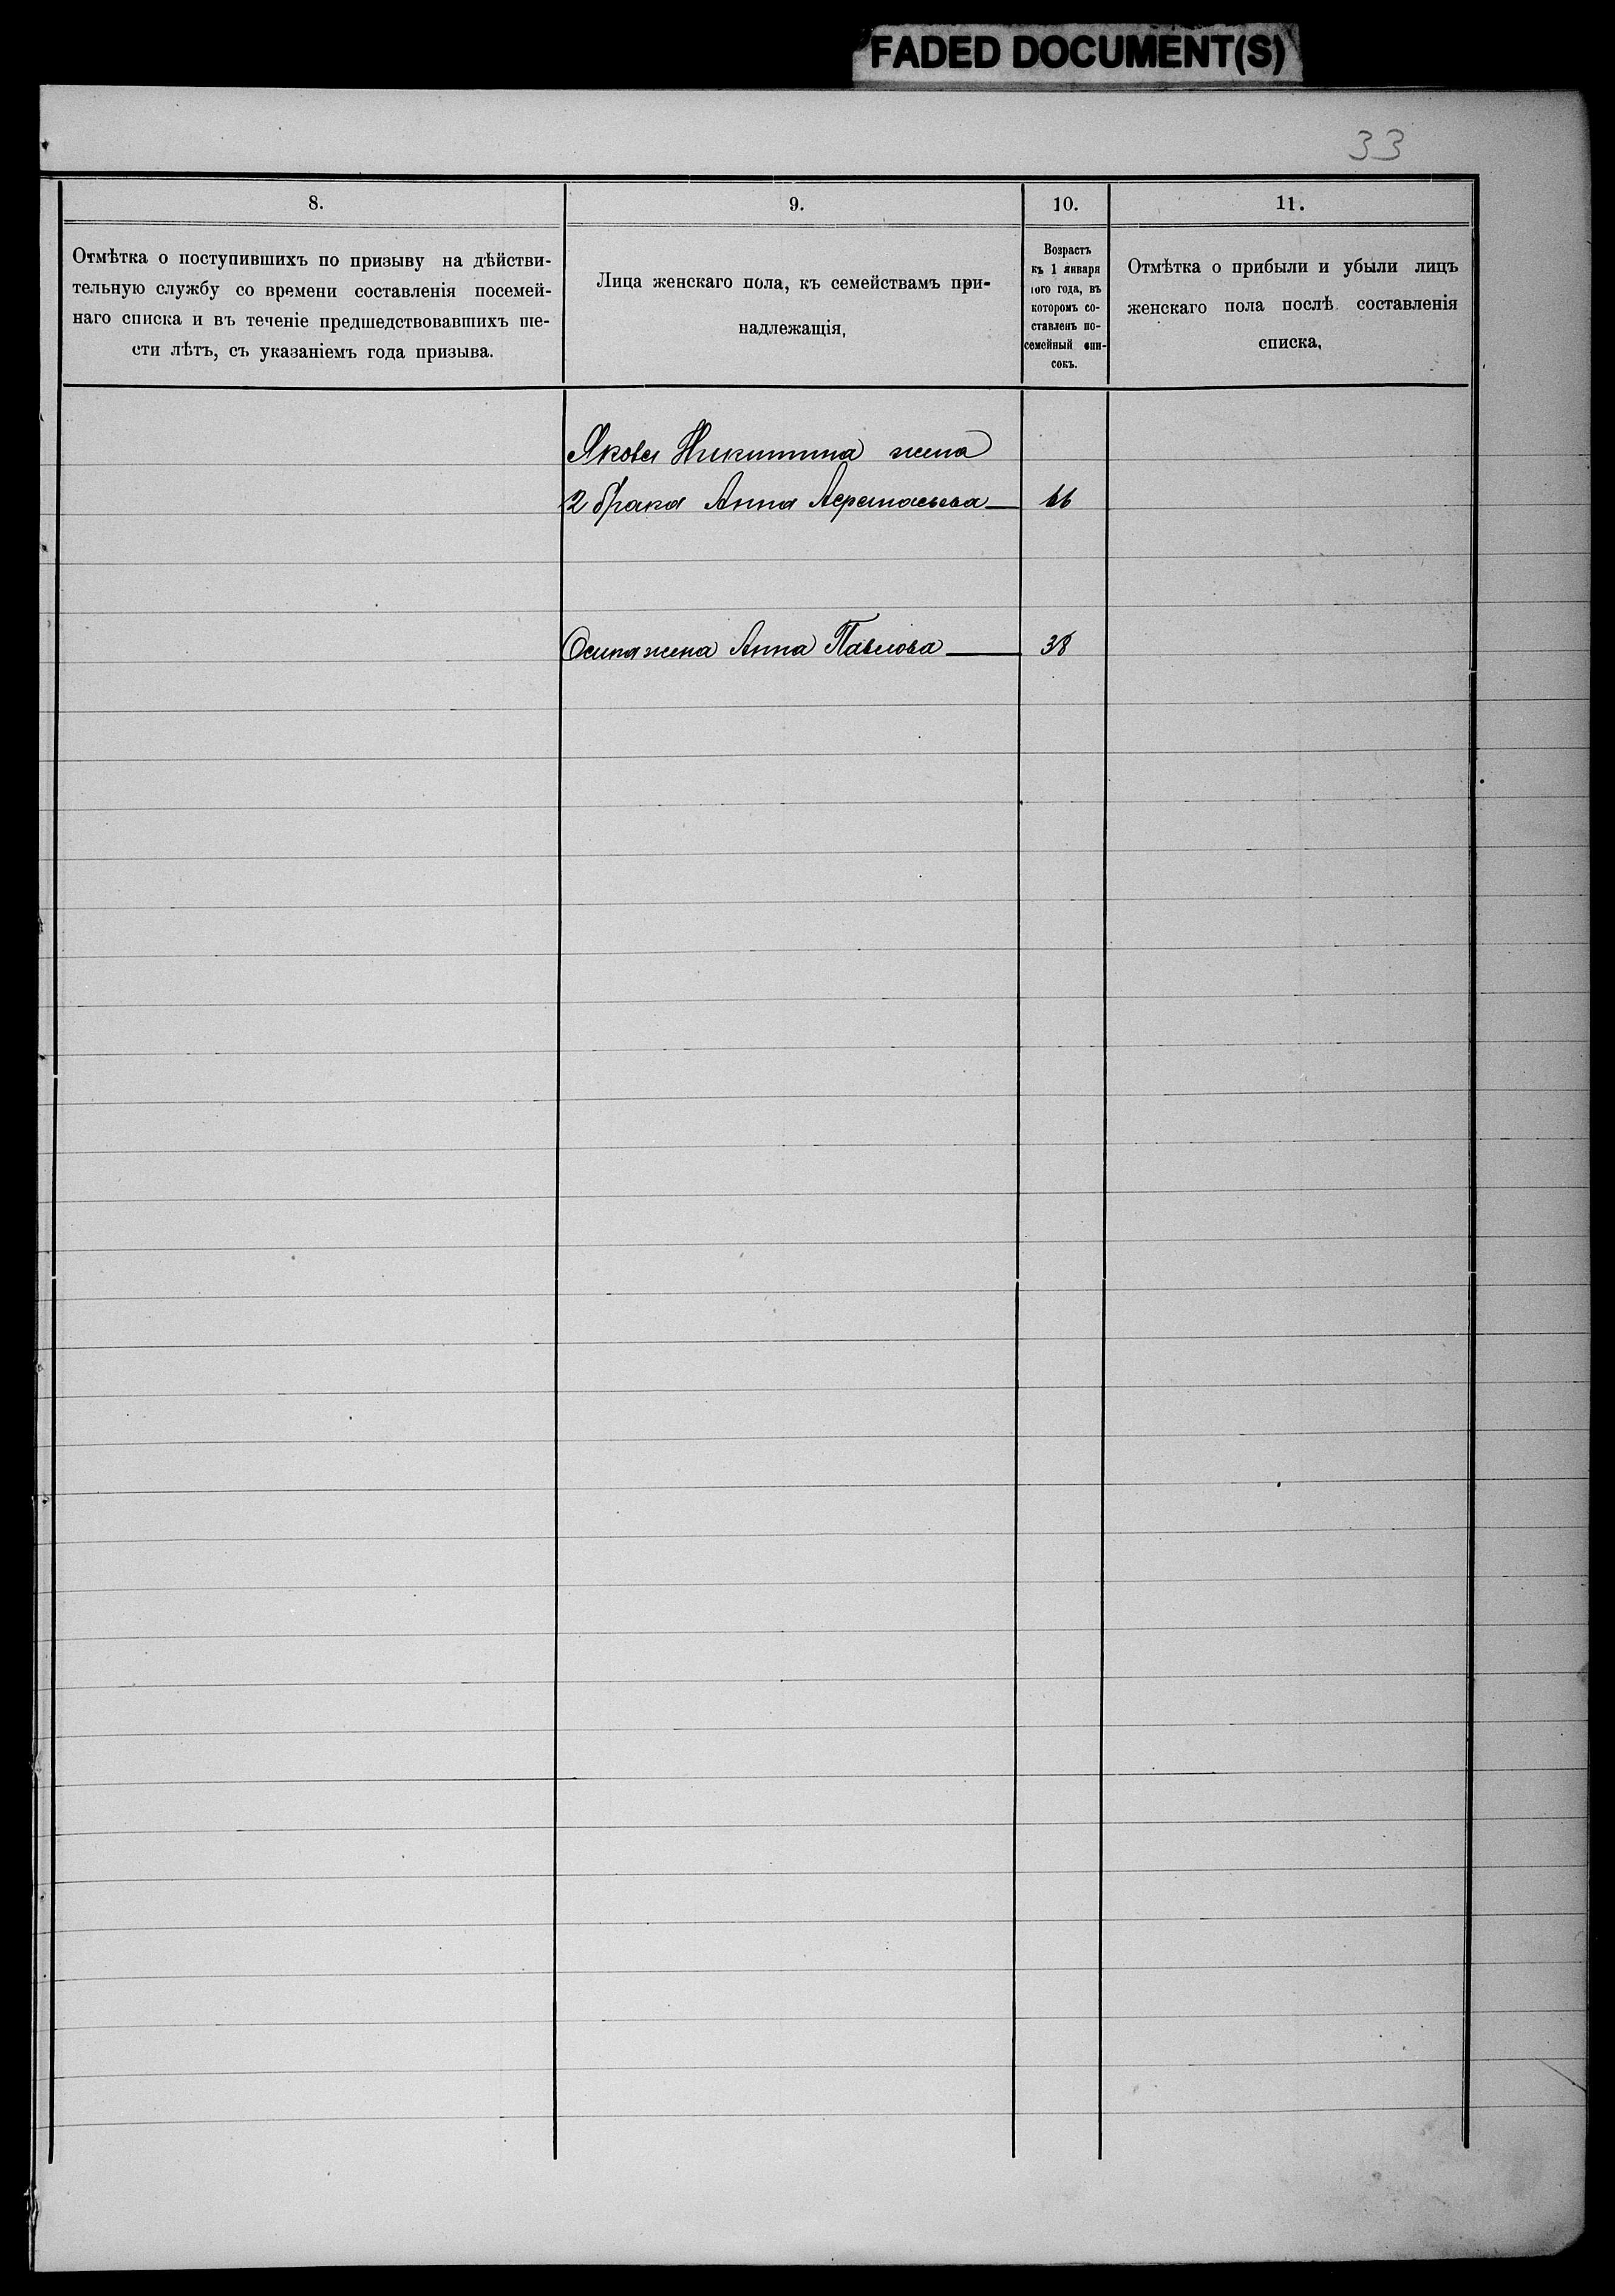 FADED DOCUMENT(S)
33
8.
Отмѣтка о поступившихъ по призыву на дѣйстви-
тельную службу со времени составленія посемей-
наго списка и въ теченіе предшедствовавшихъ ше-
сти лѣтъ, съ указаніемъ года призыва.
9.
Лица женскаго пола, къ семействамъ при-
надлежащія,
10.
Возрастъ
къ 1 января
того года, въ
которомъ со-
ставленъ по-
семейный спи-
сокъ.
11.
Отмѣтка о прибыли и убыли лицъ
женскаго пола послѣ составленія
списка,
Якова Никитина жена
2 брака Анна 66
Осипа жена Анна Павлова 38